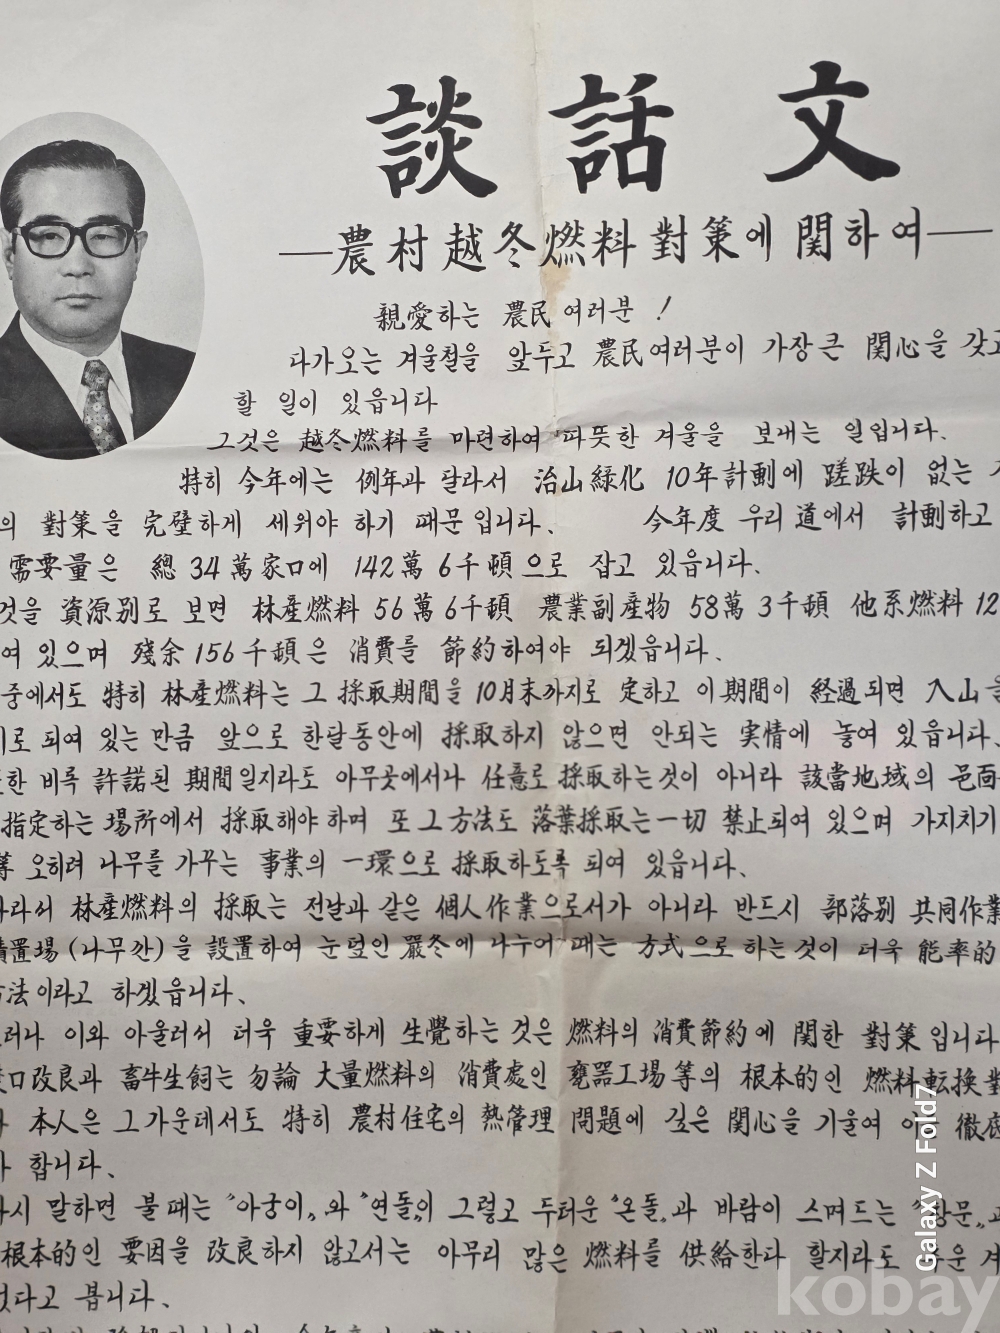 談話文
—農村越冬燃料對策에 関하여—
親愛하는 農民 여러분 !
다가오는 겨울철을 앞두고 農民여러분이 가장큰 関心을 갖고
할 일이 있읍니다
그것은 越冬燃料를 마련하여 따뜻한 겨울을 보내는 일입니다.
特히 今年에는 例年과 달라서 治山緑化 10年計劃에 蹉跌이 없는
의 對策을 完璧하게 세워야 하기 때문입니다. 今年度 우리道에서 計劃하고
需要量은 總 34萬家口에 142萬 6千頓으로 잡고 있읍니다.
것을 資源別로 보면 林産燃料 56萬 6千頓 農業副産物 58萬 3千頓 他系燃料 12
여 있으며 殘余 156千頓은 消費를 節約하여야 되겠읍니다.
중에서도 特히 林産燃料는 그 採取期間을 10月末까지로 定하고 이期間이 経過되면 入山을
로 되여 있는 만큼 앞으로 한달동안에 採取하지 않으면 안되는 実情에 놓여 있읍니다.
한 비록 許諾된 期間일지라도 아무곳에서나 任意로 採取하는것이 아니라 該當地域의 邑面
指定하는 場所에서 採取해야하며 또 그方法도 落葉採取는一切 禁止되여 있으며 가지치기
等 오히려 나무를 가꾸는 事業의 一環으로 採取하도록 되여 있읍니다.
따라서 林産燃料의 採取는 전날과 같은 個人作業으로서가 아니라 반드시 部落別 共同作業
積置場(나무깐)을 設置하여 눈덮인 嚴冬에 나누어 때는 方式으로 하는것이 더욱 能率的
方法이라고 하겠읍니다.
그러나 이와 아울러서 더욱 重要하게 生覺하는 것은 燃料의 消費節約에 関한 對策입니다
口改良과 畜牛生飼는 勿論 大量燃料의 消費處인 甕器工場等의 根本的인 燃料転換對
本人은 그가운데서도 特히 農村住宅의 熱管理 問題에 깊은 関心을 기울여 徹底
합니다.
다시 말하면 불때는 “아궁이„와 “연돌„이 그렇고 두터운 “온돌„과 바람이 스며드는 “창문„과
根本的인 要因을 改良하지 않고서는 아무리 많은 燃料를 供給한다 할지라도 추운 겨
없다고 봅니다.
Galaxy Z Fold7
kobay